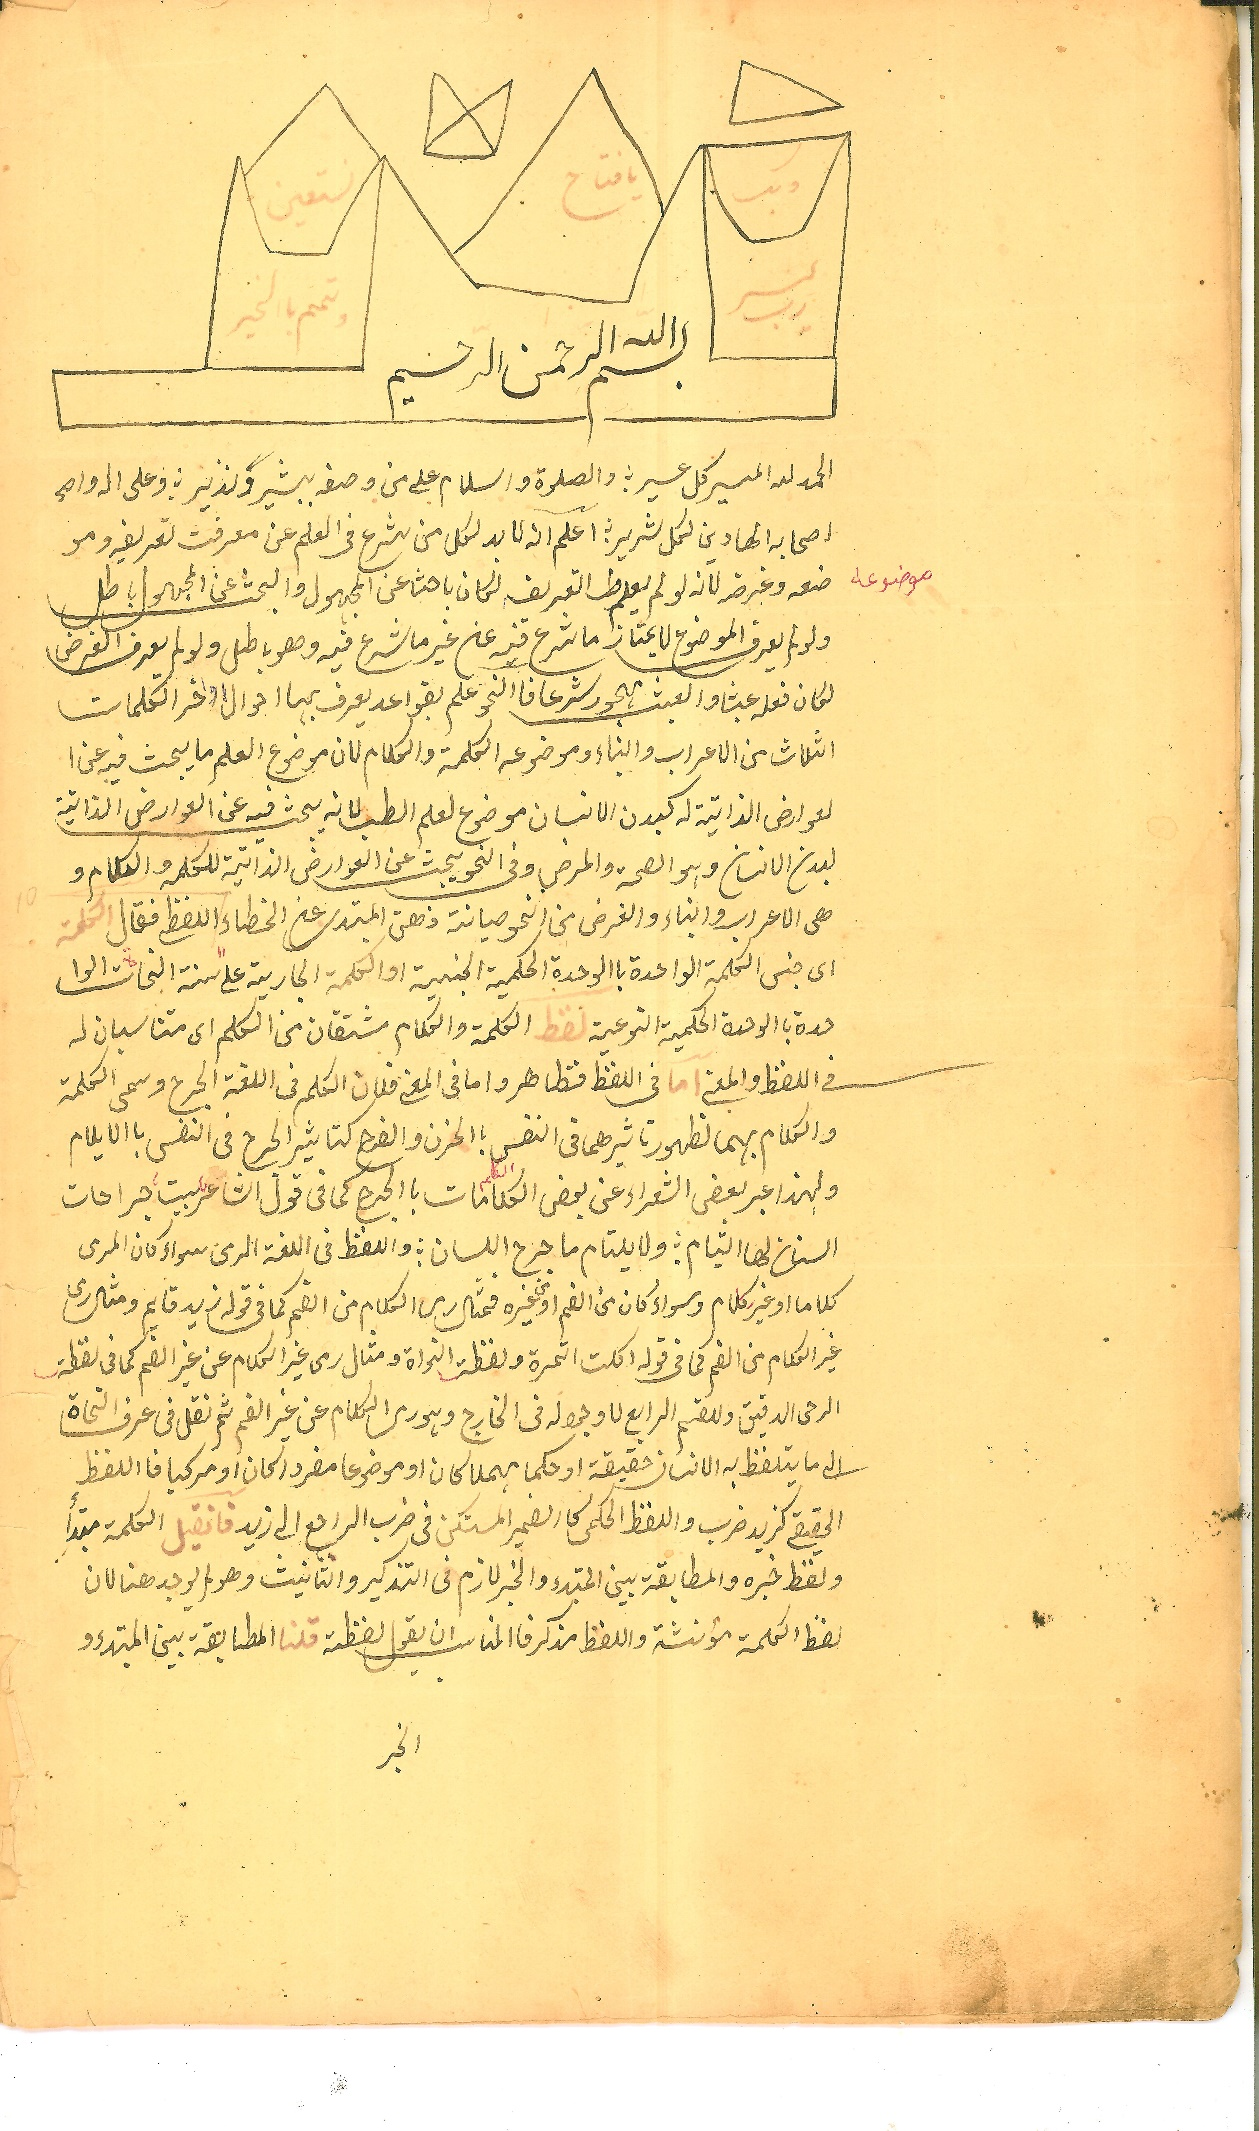 وبك
يا فتاح
نستعين
رب يسر
وتمم بالخير
بسم الله الرحمن الرحيم
الحمد لله الميسر كل عسير ؛ والصلوة والسلام على من وصفه ببشير ونذير ؛ وعلى اله و
اصحابه الهادين لكل شرير ؛ اعلم انه لا بد لكل من شرع فى العلم عن معرفت تعريفه ومو
ضعه وغرضه لانه لو لم يعلم التعريف لكان باحثا عن المجهول والبحث عن المجهول باطل
موضوعه
ولو لم يعرف الموضوع لا يمتاز ما شرع فيه عن غير ما شرع فيه وهو باطل ولو لم يعرف الغرض
لكان فعله عبثا والعبث مهجور شرعا فا النحو علم بقواعد يعرف بها احوال اواخر الكلمات
الثلاث من الاعراب والبناء وموضوعه الكلمة والكلام لان موضوع العلم ما يبحث فيه عن ا
لعوارض الذاتية له كبدن الانسان موضوع لعلم الطب لانه يبحث فيه عن العوارض الذاتية
لبدن الانسان وهو الصحة والمرض وفى النحو يبحث عن العوارض الذاتية للكلمة والكلام و
هى الاعراب والبناء والغرض من النحو صيانة ذهن المبتدى عن الخطاء اللفظ فقال الكلمة
اى جنس الكلمة الواحدة با الوحدة الحكمية الجنسية او الكلمة الجارية على السنة النحات الوا
حدة با الوحدة الحكمية النوعية لفظ الكلمة والكلام مشتقان من الكلم اى متناسبان له
فى اللفظ والمعنى اما فى اللفظ فظاهر واما فى المعنى فلان الكلم فى اللغة الجرح وسمى الكلمة
والكلام بهما لظهور تاثيرهما فى النفس با الحزن والفرح كتاثير الجرح فى النفس با الايلام
ولهذا عبر بعض الشعراء عن بعض الكلامات با الجرح كما فى قول الشاعر بيت جراحات
السنان لها التيام ؛ ولا يلتام ما جرح اللسان ؛ واللفظ فى اللغة الرمى سواء كان المرمى
كلاما او غير كلام وسواء كان من الفم او من غيره فمثال رمى الكلام من الفم كما فى قوله زيد قايم ومثال رمى
غير الكلام من الفم كما فى قوله اكلت التمرة ولفظت النواة ومثال رمى غير الكلام عن غير الفم كما فى لفظت
الرحى الدقيق وللقسم الرابع لا وجود له فى الخارج وهو رمى الكلام عن غير الفم ثم نقل فى عرف النحاة
الى ما يتلفظ به الانسان حقيقة او حكما مهملا كان او موضوعا مفردا كان او مركبا فا اللفظ
الحقيقى كزيد ضرب واللفظ الحكمى كا الضمير المستكن فى ضرب الراجع الى زيد فان قيل الكلمة مبتدأ
ولفظ خبره والمطابقة بين المبتدء والخبر لازم فى التذكير والتانيث وهو لم يوجد هنا لان
لفظ الكلمة مؤنثة واللفظ مذكر فا المناسب ان يقول لفظة قلنا المطابقة بين المبتدء و
الخبر